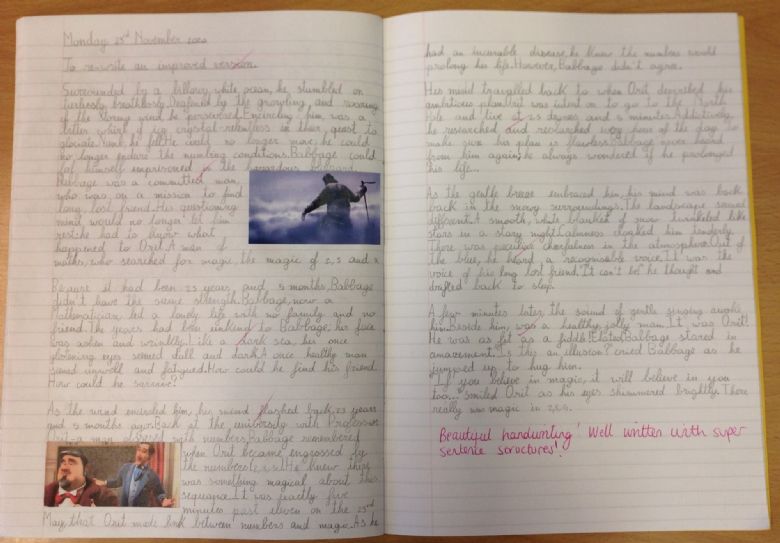 Monday 23rd November 2020
To re-write an improved version.
Surrounded by a billowy, white ocean, he stumbled on
tirelessly, breathlessly. Deafened by the growling and roaring
of the storms wind he persevered. Encircling him, was a
bitter whirl of icy crystal-relentless in their quest to
Numb, he fell. He could no longer move; he could
no longer endure the numbing conditions. Babbage could
feel himself imprisoned in the hazardous blizzard.
Babbage was a committed man,
who was on a mission to find
long lost friend. His questioning
mind would no longer let him
rest: he had to know what
happened to Orit. A man of
maths, who searched for magic, the magic of 2, 5 and
Because it had been 23 years, and 5 months, Babbage
didn't have the same strength. Babbage, now a
Mathematician, led a lonely life with no family and no
friend. The years had been unkind to Babbage: his face
was ashen and wrinkly. Like a dark sea, his once
gleaming eyes seemed dull and dark. A once healthy man
seemed unwell and fatigued. How could he find his friend.
How could he survive?
As the wind encircled him, his mind flashed back, 23 years
and 5 months ago. Back at the university with Professor
Orit-a man obsessed with numbers. Babbage remembered
when Orit became engrossed by
the numbers: He knew there
was something magical about this
sequence. It was exactly five
minutes past eleven on the 23rd
May, that Orit made link between numbers and magic. As he
had an incurable disease, he knew the numbers would
prolong his life. However, Babbage didn't agree.
His mind travelled back to when Orit described his
ambitious plan. Orit was intent on to go to the North
Pole and live at 23 degrees and 5 minutes. Addictively,
he researched and researched every hour of the day to
make sure his plan is flawless. Babbage never heard
from him again; he always wondered if he prolonged
his life...
As the gentle breeze embraced him, his mind was back
back in the snowy surroundings. The landscape seemed
different. A smooth, white blanket of snow twinkled like
stars in a stary night. Calmness cloaked him tenderly.
There was peculiar cheerfulness in the atmosphere. Out of
the blue, he heard a recognisable voice. It was the
voice of his long lost friend. It can't be! he thought and
drifted back to sleep.
A few minutes later, the sound of gentle singing awoke
him. Beside him, was a healthy, jolly man. It was Orit!
He was as fit as a fiddle! Elated, Babbage stared in
amazement. Is this an illusion? cried Babbage as he
jumped up to hug him.
"If you believe in magic, it will believe in you
too..." smiled Orit as his eyes shimmered brightly. There
really was magic in
Beautiful handwriting! Well written with super
sentence structures!